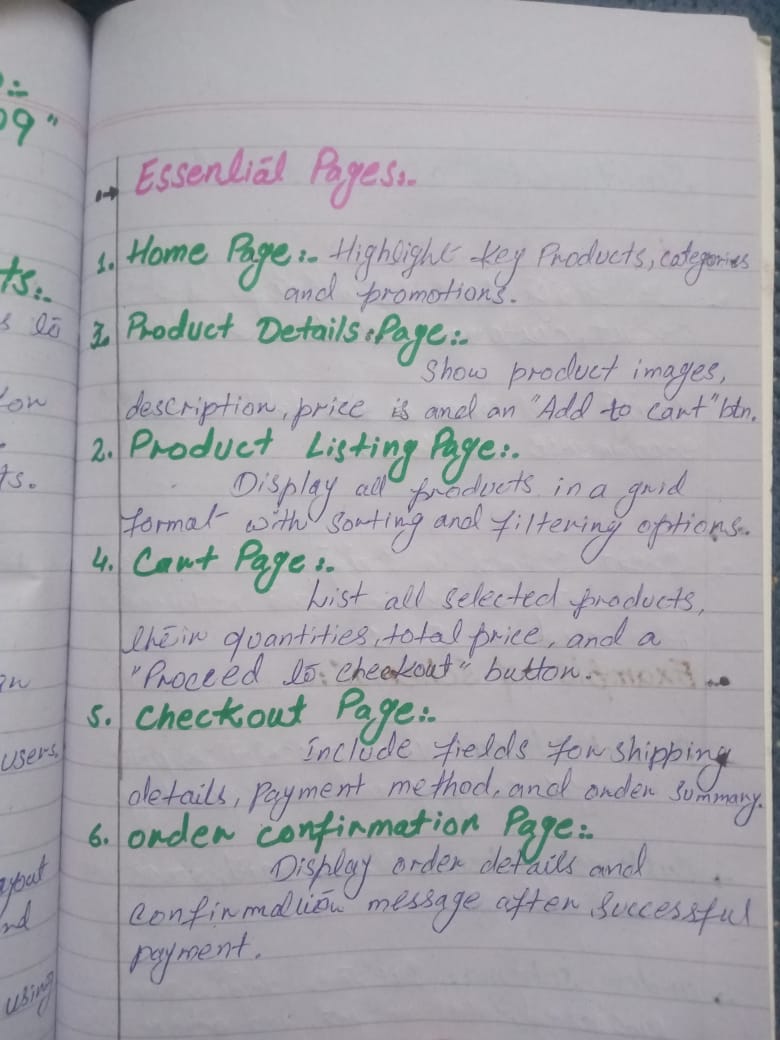 09"
ts:.
s to
ts.
users.
using
→ Essential Pages:.
1. Home Page:. Highlight key Products, categories
and promotions.
3. Product Details Page:.
Show product images,
description, price is and an "Add to cart" btn.
2. Product Listing Page:.
Display all products in a grid
format with sorting and filtering options.
4. Cart Page:.
List all selected products,
their quantities, total price, and a
"Proceed to checkout" button.
5. Checkout Page:.
Include fields for shipping
details, Payment method, and order summary.
6. order confirmation Page:.
Display order details and
confirmation message after successful
payment.